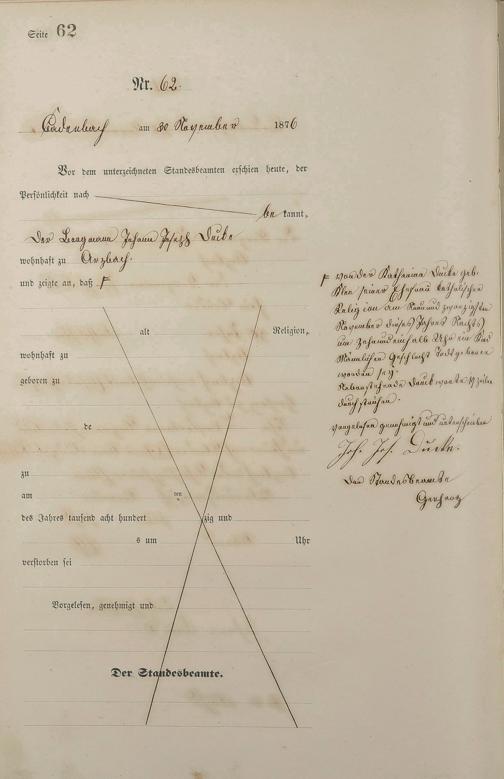 Seite 62
Nr. 62.
Cadenbach am 30 November 1876
Vor dem unterzeichneten Standesbeamten erschien heute, der
Persönlichkeit nach
be kannt,
der Bergmann Johann Joseph Ducke
wohnhaft zu Arzbach.
und zeigte an, daß
alt Religion,
wohnhaft zu
geboren zu
de
zu
am ten
des Jahres tausend acht hundert zig und
s um Uhr
verstorben sei
Vorgelesen, genehmigt und
Der Standesbeamte.
von der Katharina Ducke geb.
seiner Ehefrau katholischer
Religion am Neunundzwanzigsten
November dieses Jahres Nachts
um Zehneinhalb Uhr ein Kind
Männlichen Geschlecht Todtgeboren
worden sey.
Nebenstehende Druckworte zeilen
durchstrichen.
Vorgelesen genehmigt und unterschrieben
Joh. Jos. Ducke.
Der Standesbeamte
Gerharz